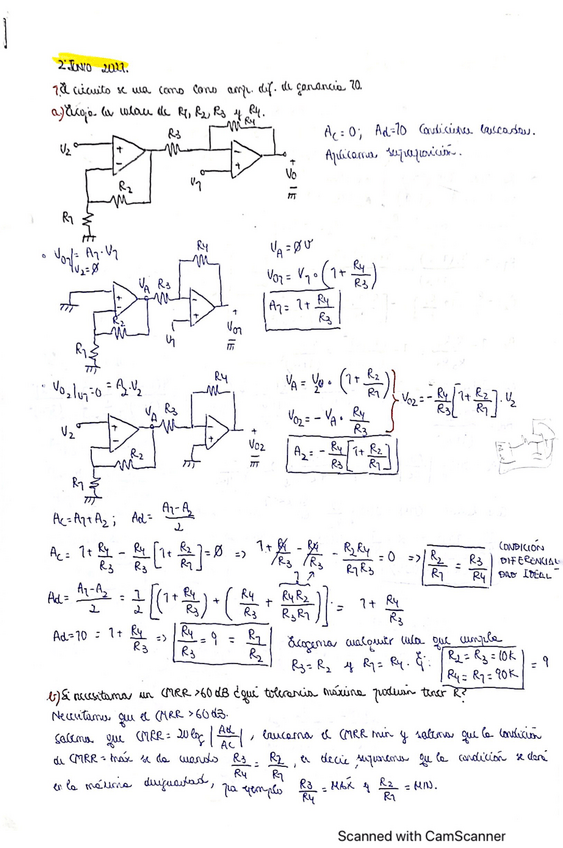 2 JUNIO 2021.
1. El circuito se usa como amp. dif. de ganancia 10.
a) Escoja los valores de R1, R2, R3 y R4.
R4
R3
V2
R2
V1
VO
R1
Ac = 0; Ad = 10 Condiciones buscadas.
Aplicamos superposición.
VO1|V2=0 = A1·V1
VA R3
R4
R2
R1
V1
VO1
VA = 0V
VO1 = V1·(1 + R4/R3)
A1 = 1 + R4/R3
VO2|V1=0 = A2·V2
V2
VA R3
R4
R2
R1
VO2
VA = V2·(1 + R2/R1)
VO2 = -VA·R4/R3
VO2 = -R4/R3[1 + R2/R1]·V2
A2 = -R4/R3[1 + R2/R1]
Ac = A1 + A2; Ad = (A1 - A2)/2
Ac = 1 + R4/R3 - R4/R3[1 + R2/R1] = 0 => 1 + R4/R3 - R4/R3 - R2R4/R1R3 = 0 => R2/R1 = R3/R4
CONDICIÓN DIFERENCIAL IDEAL
Ad = (A1 - A2)/2 = 1/2[(1 + R4/R3) + (R4/R3 + R4R2/R3R1)] = 1 + R4/R3
1
Ad = 10 = 1 + R4/R3 => R4/R3 = 9 = R1/R2
Escogemos cualquier valor que cumpla
R3 = R2 y R1 = R4.
R2 = R3 = 10K
R4 = R1 = 90K
= 9
b) Si necesitamos un CMRR > 60 dB ¿qué tolerancia máxima podrían tener R?
Necesitamos que el CMRR > 60 dB.
Sabemos que CMRR = 20 log |Ad/Ac|, buscamos el CMRR min y sabemos que la condición
de CMRR = máx se da cuando R3/R4 = R2/R1, es decir, suponemos que la condición se dará
en la máxima desigualdad, por ejemplo R3/R4 = MÁX y R2/R1 = MIN.
Scanned with CamScanner